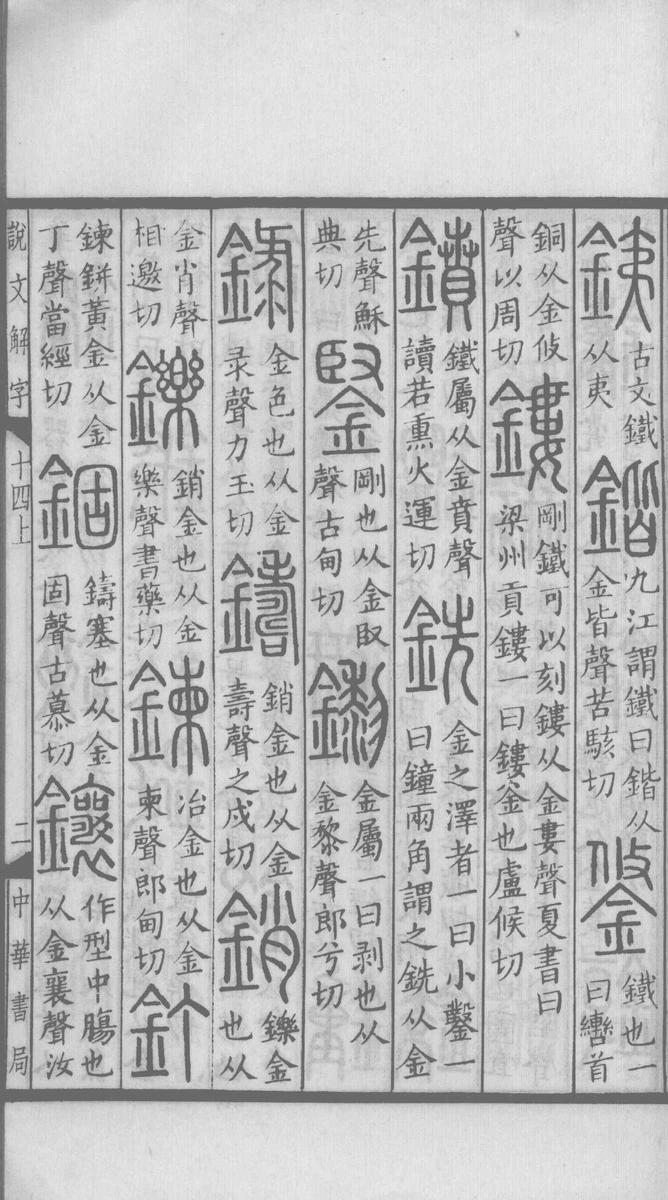 銕古文鐵从夷鍇九江謂鐵曰鍇从金皆聲苦駭切鋚鐵也一曰轡首
銅从金攸聲以周切鏤剛鐵可以刻鏤从金婁聲夏書曰梁州貢鏤一曰鏤釡也盧候切
鐼鐵屬从金賁聲讀若熏火運切銑金之澤者一曰小鑿一曰鐘兩角謂之銑从金
先聲穌典切鋻剛也从金臤聲古甸切鑗金屬一曰剥也从金黎聲郎兮切
錄金色也从金录聲力玉切鑄銷金也从金壽聲之戍切銷鑠金也从
金肖聲相邀切鑠銷金也从金樂聲書藥切鍊冶金也从金柬聲郎甸切釘
鍊鉼黃金从金丁聲當經切錮鑄塞也从金固聲古慕切鑲作型中膓也从金襄聲汝
說文解字 十四上 二 中華書局